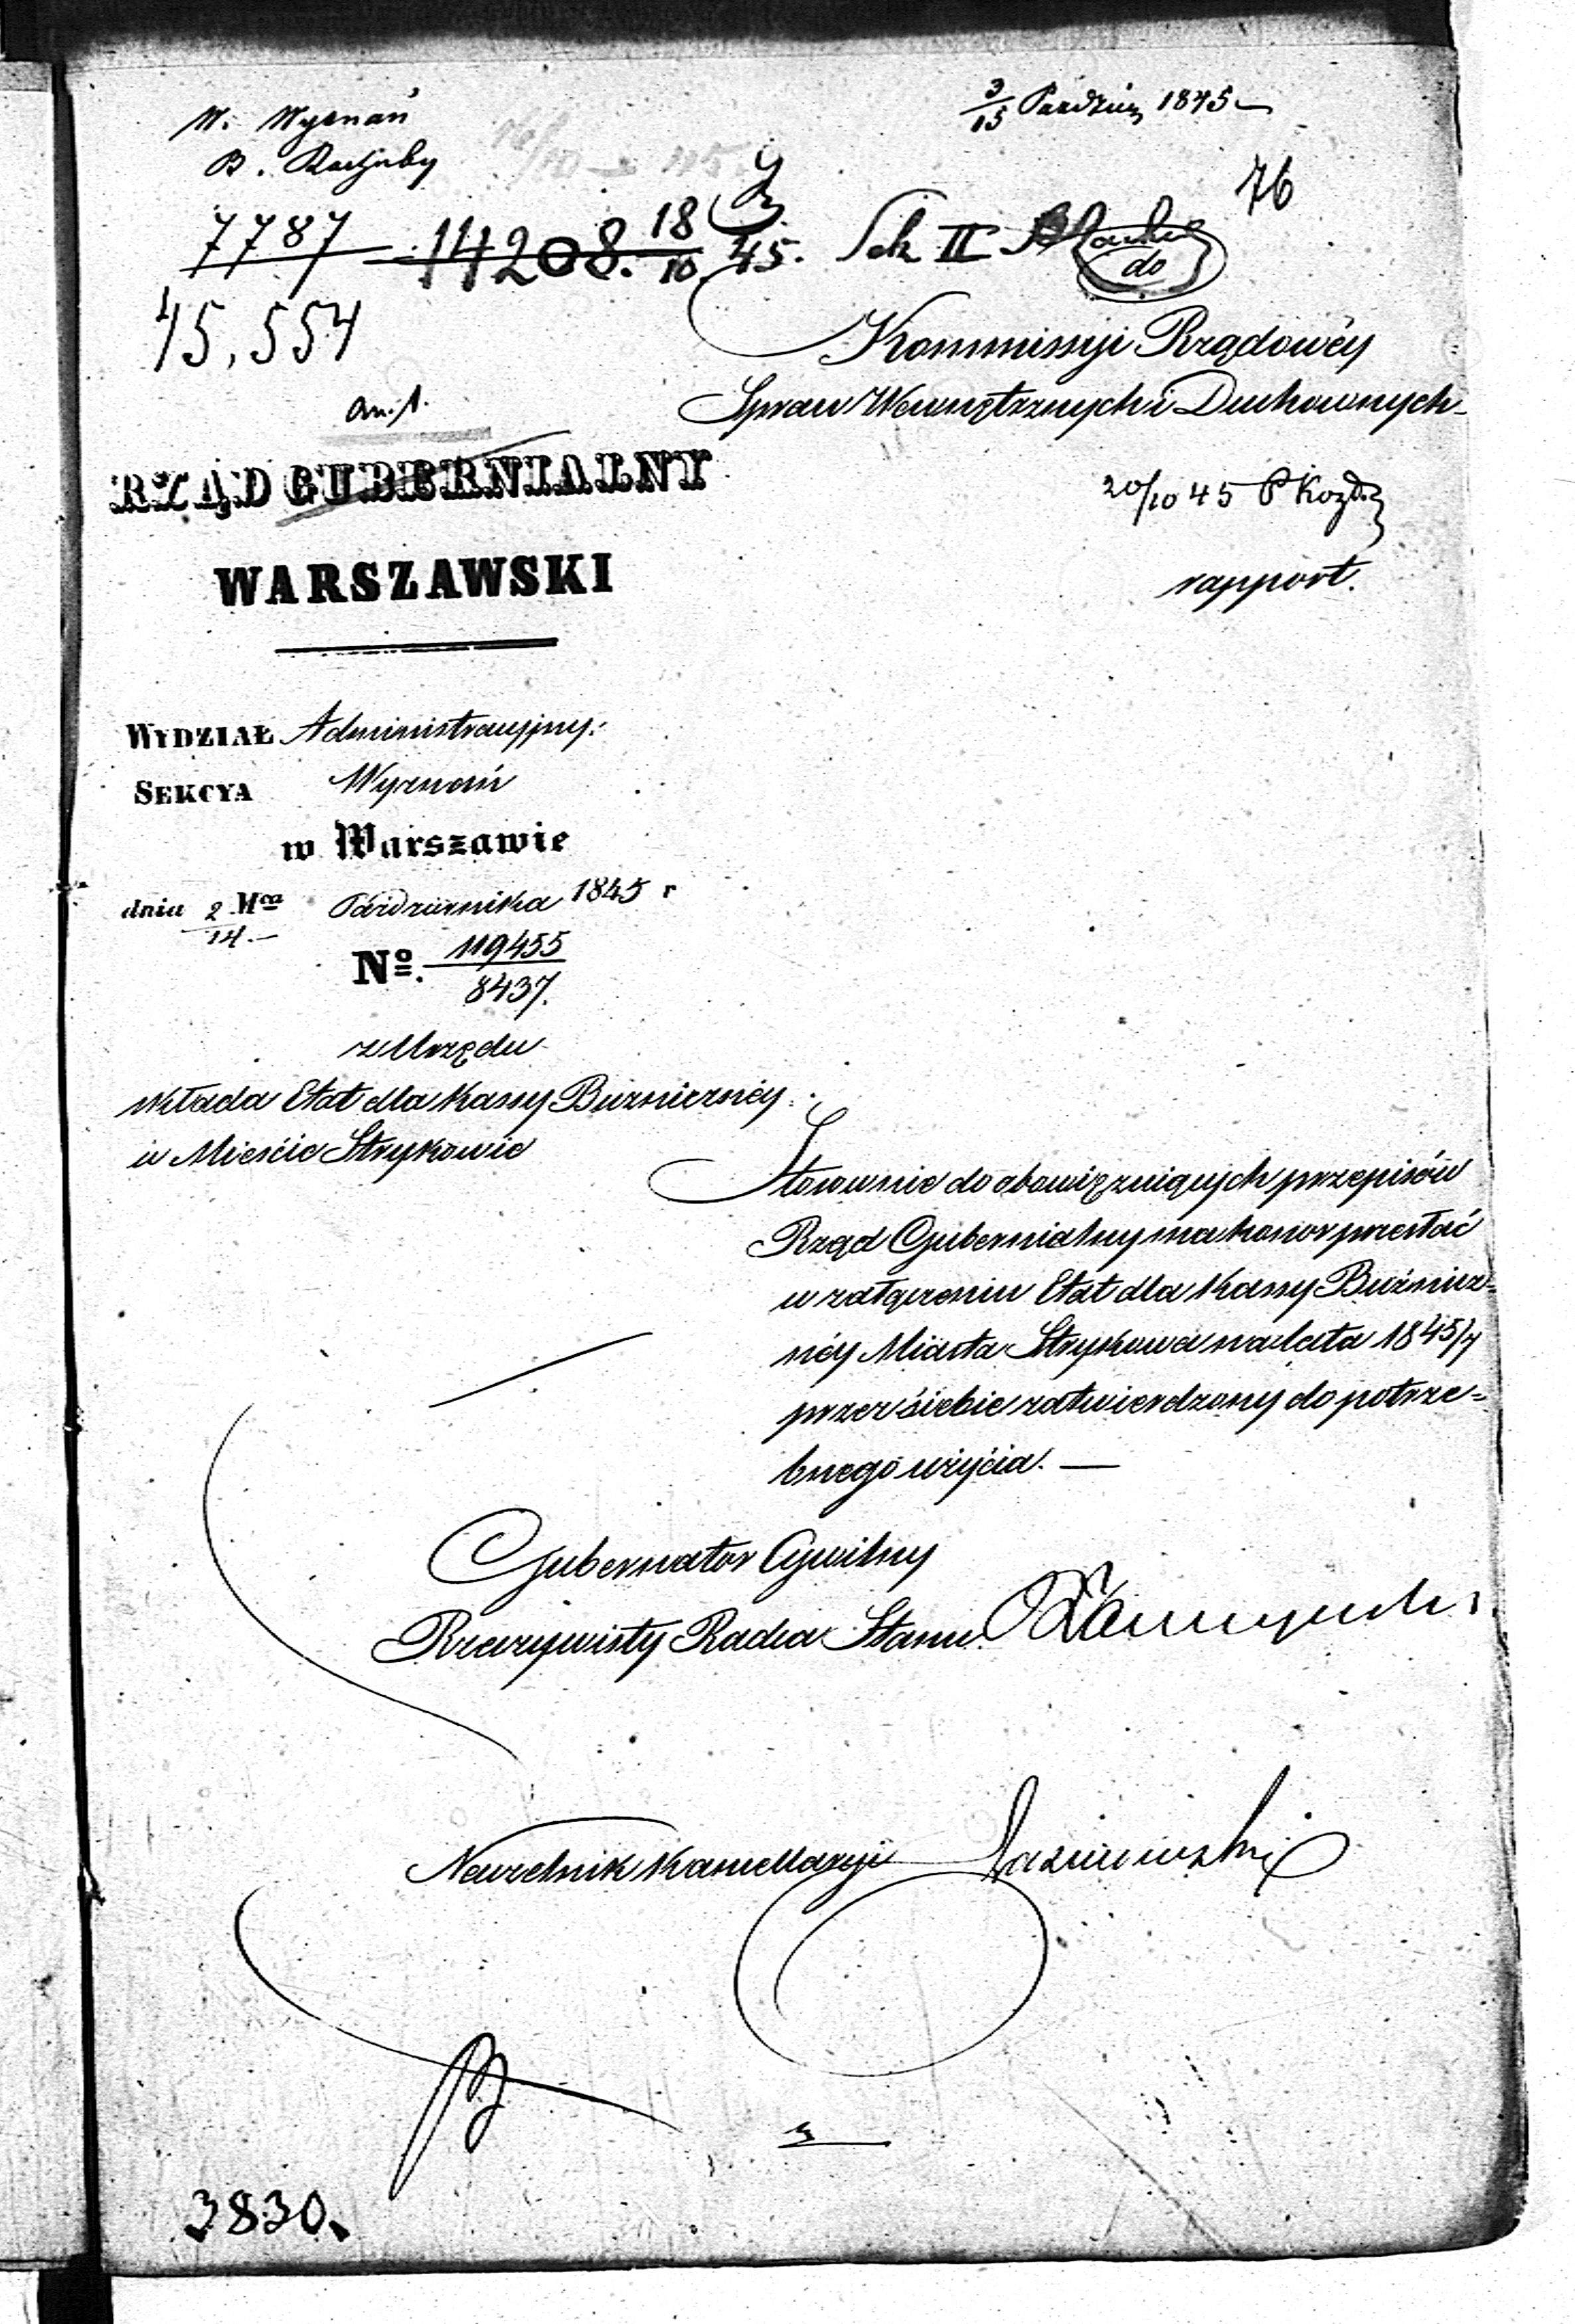 W. Wyznań
B. Rachuby
3/15 Paździer 1845
76
7787 14208. 18/10 45. Sek II
do
15,554
an. 1.
Kommissyi Rządowéy
Spraw Wewnętrznych i Duchownych
RZĄD GUBERNIALNY
WARSZAWSKI
20/10 45 P Kozł.
rapport.
WYDZIAŁ Administracyjny.
SEKCYA Wyznań
w Warszawie
dnia 2/14 Mca Października 1845 r
No. 119455/8437.
z Urzędu
składa Etat dla Kassy Bużnicznéy
w Mieście Strykowie
Stosownie do obowięzuiących przepisów
Rząd Gubernialny ma honor przesłać
w załączeniu Etat dla Kassy Bużnicz=
néy Miasta Strykowa na lata 1845/7
przez siebie zatwierdzony do potrze=
bnego użycia. —
Gubernator Cywilny
Rzeczywisty Radca Stanu
Naczelnik Kancellaryi
3830.